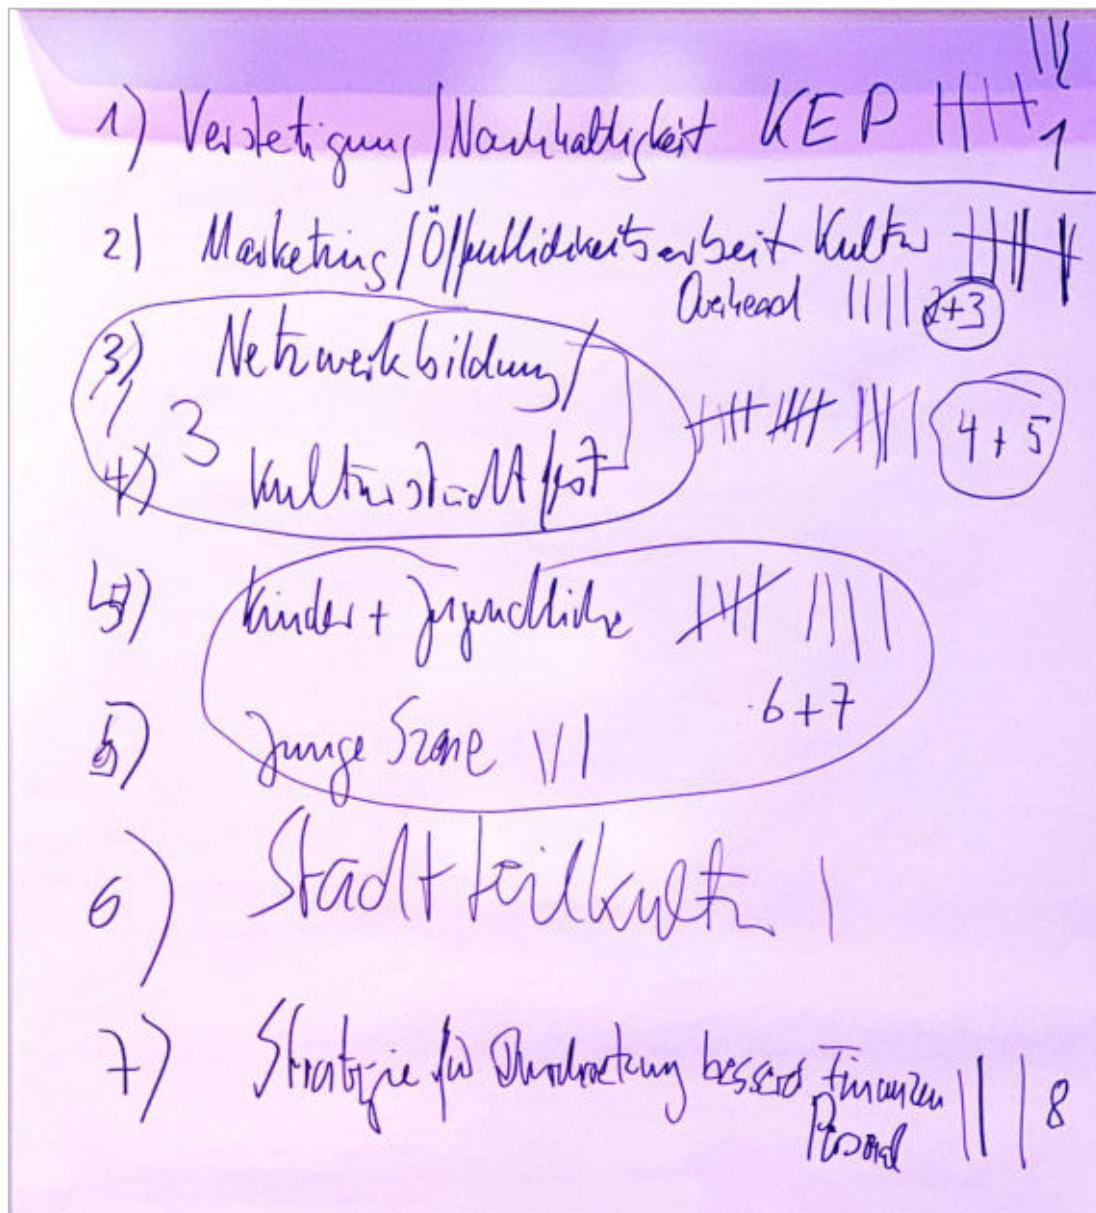 1) Verstetigung/Nachhaltigkeit KEP 1
2) Marketing/Öffentlichkeitsarbeit Kultur
Overhead 2+3
3) Netzwerkbildung/
3
4+5
4) Kulturstadtfest
5) Kinder + Jugendliche
6+7
6) Junge Szene
6) Stadtteilkultur
7) Strategie für Durchsetzung besserer Finanzen
Personal 8